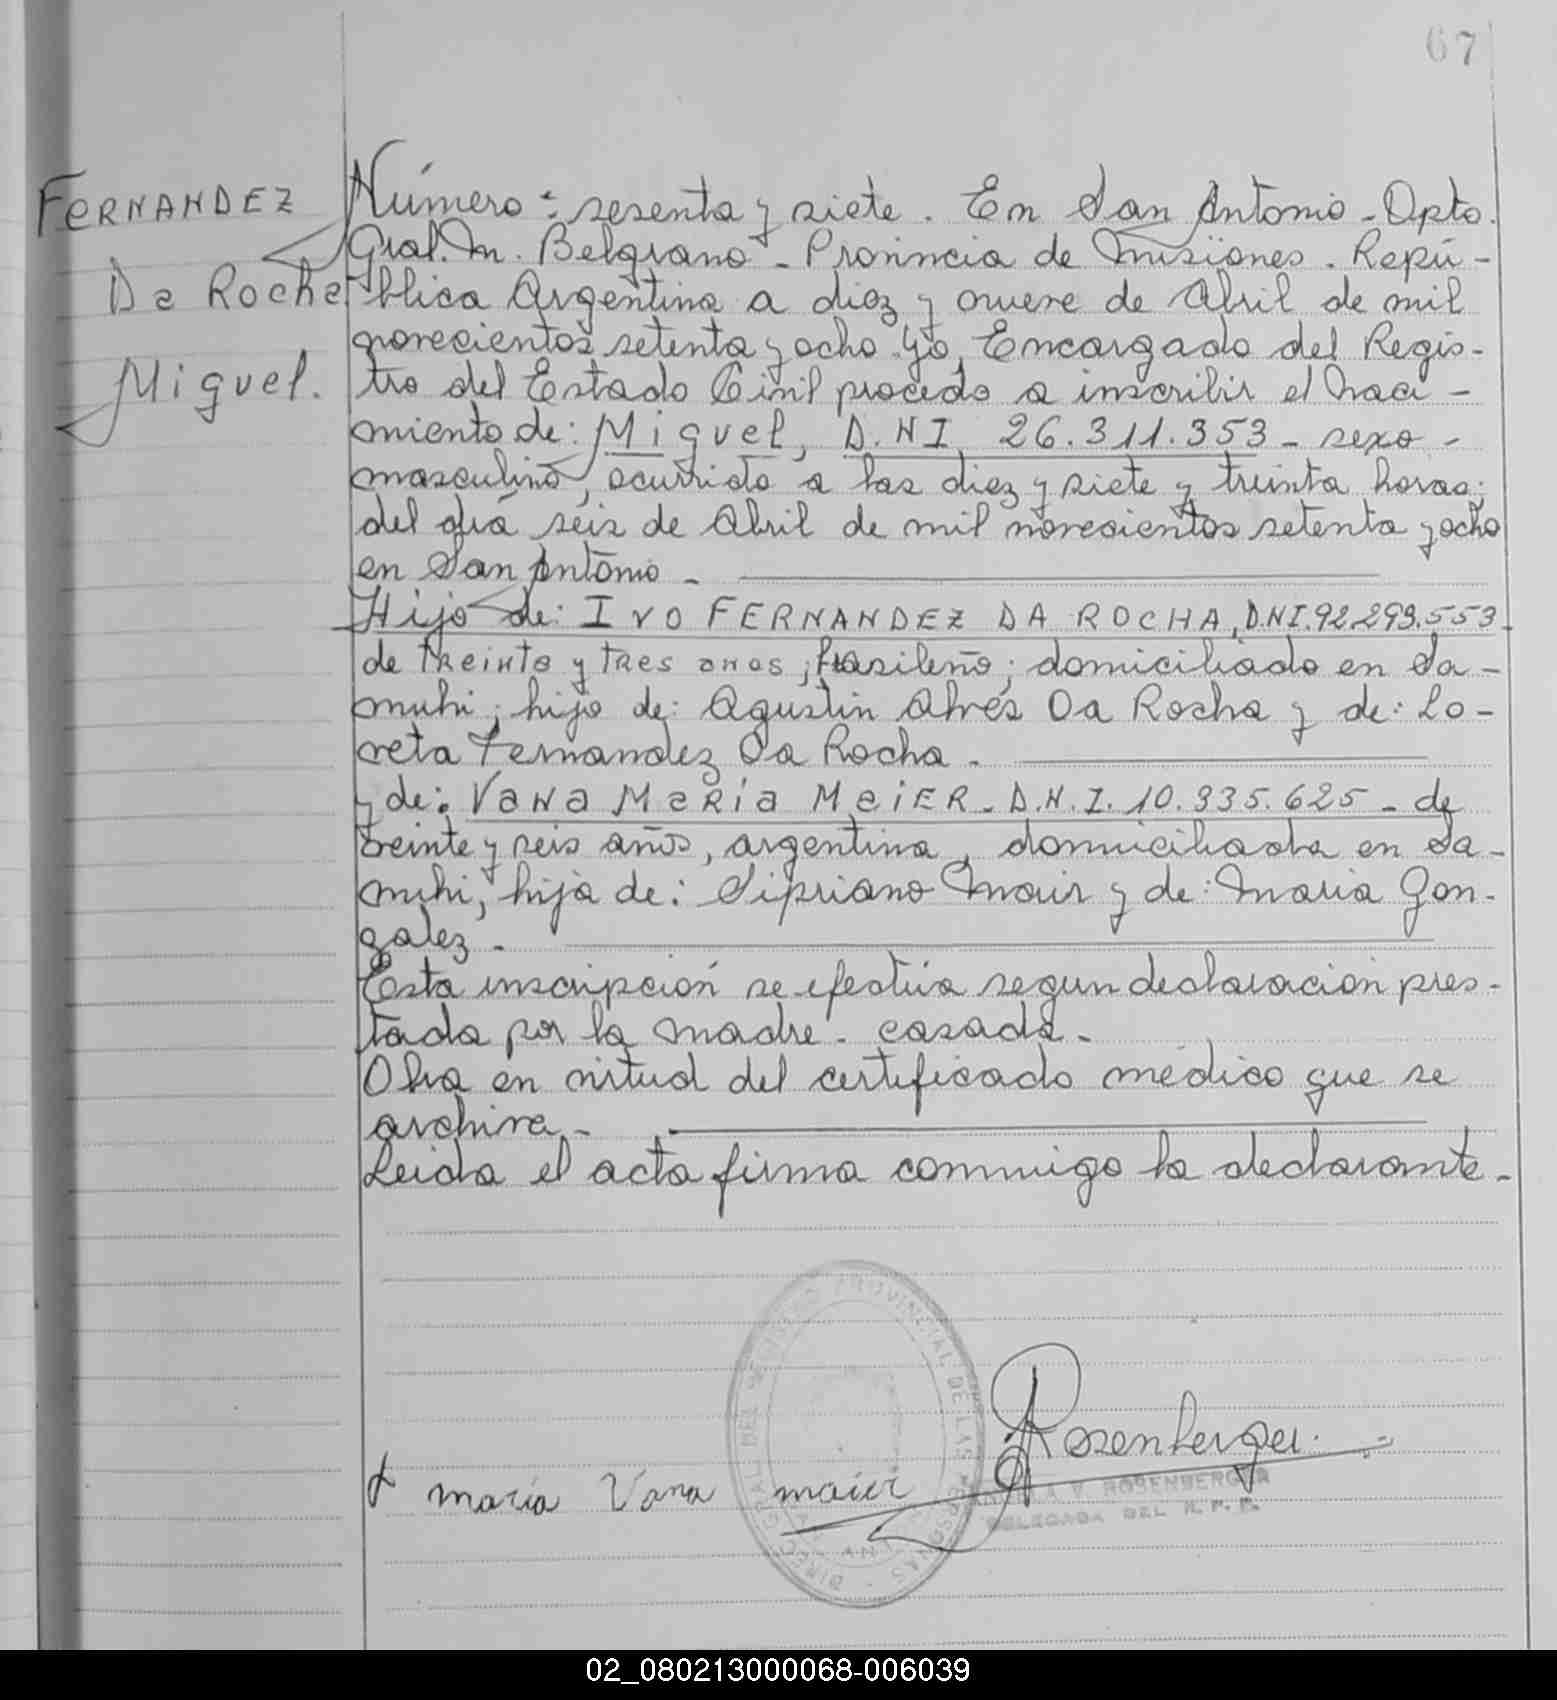 67
FERNANDEZ
Da Rocha
Miguel.
Número: sesenta y siete. En San Antonio - Dpto.
Gral. M. Belgrano - Provincia de Misiones. Repú-
blica Argentina a diez y nueve de Abril de mil
novecientos setenta y ocho. Yo, Encargado del Regis-
tro del Estado Civil procedo a inscribir el Naci-
miento de: Miguel, D.NI. 26.311.353 - sexo -
masculino, ocurrido a las diez y siete y treinta horas;
del día seis de Abril de mil novecientos setenta y ocho
en San Antonio -
Hijo de: IVO FERNANDEZ DA ROCHA, D.NI. 92.299.553
de treinta y tres años, brasileño; domiciliado en Sa-
muhi; hijo de: Agustin Alves Da Rocha y de: Lo-
reta Fernandez Da Rocha.
y de: Vana Maria Meier - D.N.I. 10.335.625 - de
veinte y seis años, argentina, domiciliada en Sa-
muhi, hija de: Sipriano Mair y de: Maria Gon-
zalez -
Esta inscripción se efectúa segun declaración pres-
tada por la madre - casada -
Obra en virtud del certificado médico que se
archiva -
Leida el acta firma conmigo la declarante -
Rosenberger.
maria Vana maier
V. ROSENBERGER
DELEGADA DEL R. P. P.
PROVINCIAL DE LAS PERSONAS
02_080213000068-006039